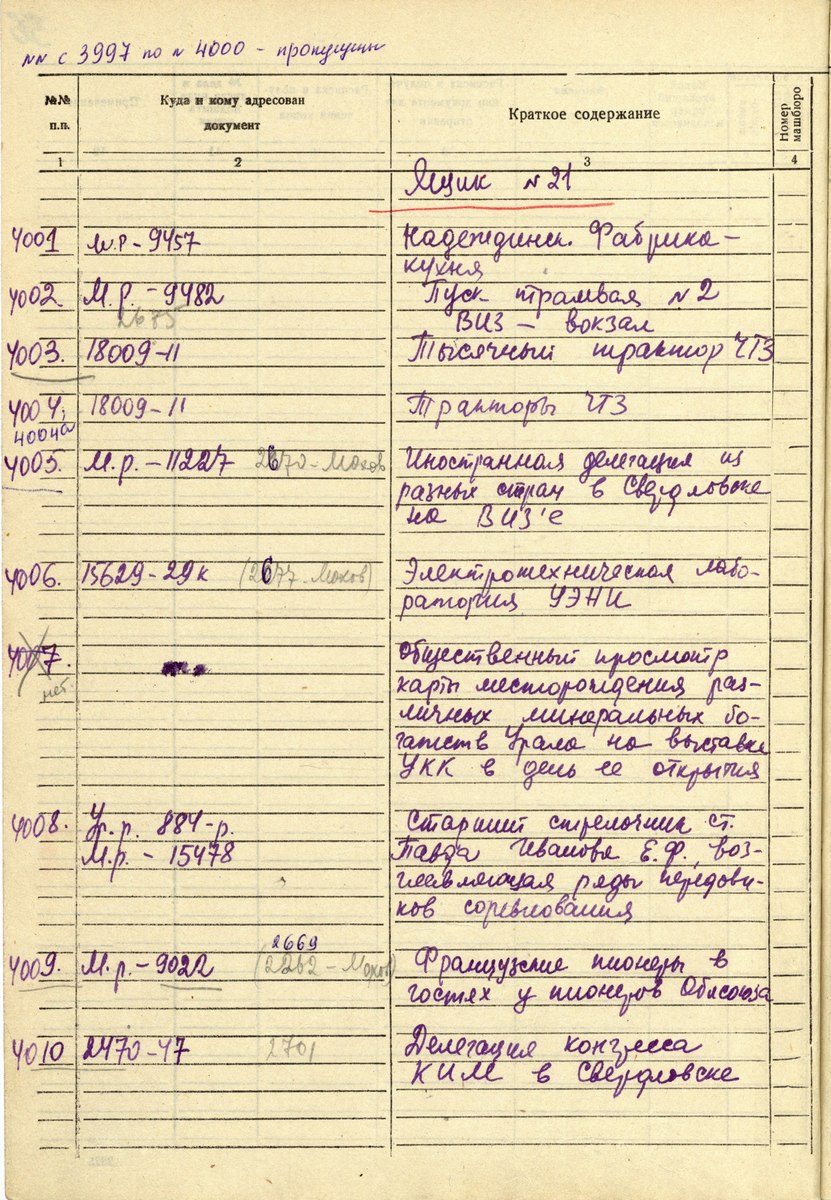 NN с 3997 по N 4000 - пропущены
№№ п.п.
Куда и кому адресован документ
Краткое содержание
Номер машбюро
1 2 3 4
Ящик N 21
4001 М.Р - 9457 Надеждинск. Фабрика-
кухня
4002 М.р. - 9482 Пуск трамвая N 2
2675 ВИЗ - вокзал
4003. 18009-11 Тысячный трактор ЧТЗ
4004, 18009-11 Тракторы ЧТЗ
4004а
4005. М.р. - 11227 2670 - Мохов Иностранная делегация из
разных стран в Свердловске
на ВИЗ'е
4006. 15629-29к (2677 - Мохов) Электротехническая лабо-
ратория УЭНИ
4007. Общественный просмотр
нет. карты месторождения раз-
личных минеральных бо-
гатств Урала на выставке
УКК в день ее открытия
4008. Ур.р. 884-р. Старший стрелочник ст.
М.р. - 15478 Павда Иванова Е.Ф., воз-
главляющая ряды передови-
ков соревнования
2669
4009. М.р. - 9022 (2262 - Мохов) Французские пионеры в
гостях у пионеров Облсоюза
4010 2470-47 2701 Делегация конгресса
КИМ в Свердловске